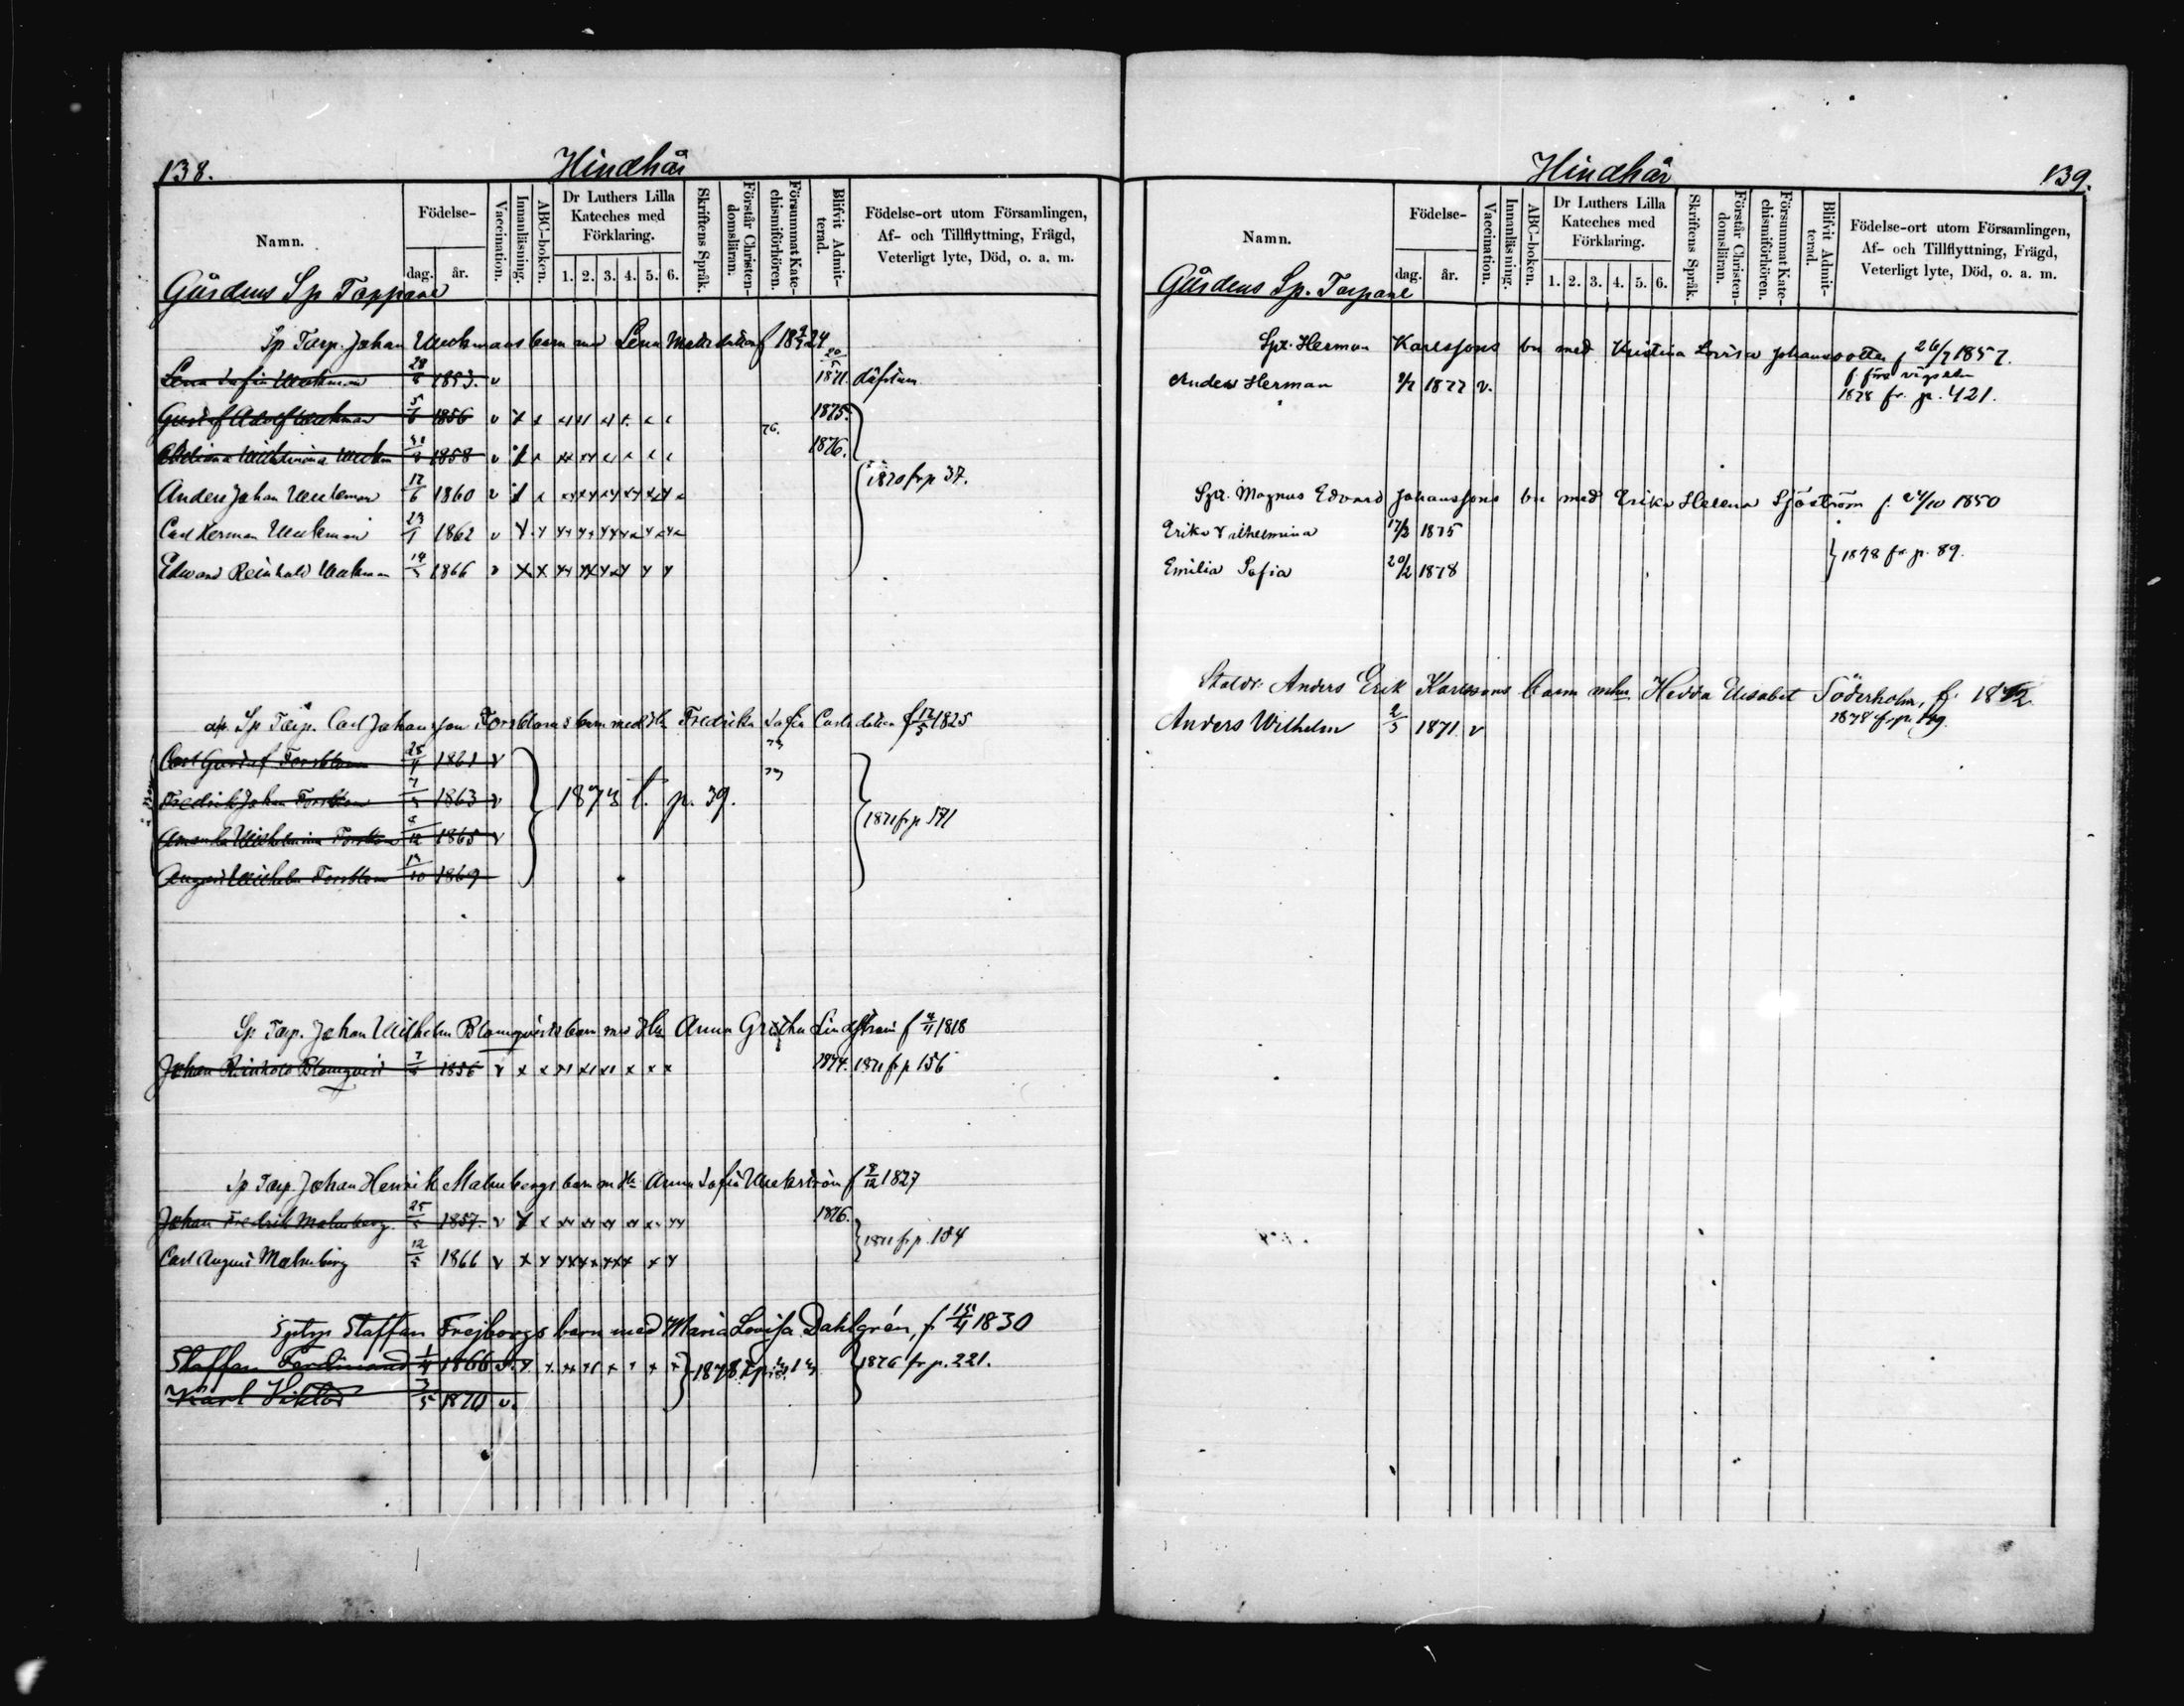 138. Hindhår
Namn. Födelse- dag. år. Vaccination. Innanläsning. ABC-boken. Dr Luthers Lilla Kateches med Förklaring. 1. 2. 3. 4. 5. 6. Skriftens Språk. Förstår Christendomsläran. Försummat Katechismiförhören. Blifvit Admitterad. Födelse-ort utom Församlingen, Af- och Tillflyttning, Frägd, Veterligt lyte, Död, o. a. m.
Gårdens Sp Torpare
Sp Torp. Johan barn med Lena
Lena Sofia 1853. v 1871.
Gustaf Adolf 5/6 1856 v x x 1875.
1858 v 76. 1876.
Anders Johan 17/6 1860 v 1870 fr p 37.
Carl Herman 1862 v
Edward Reinhold 1866 v x x
Sp Torp. Carl Johansson Forsbloms barn med Fredrika Sofia f 12/5 1825
Carl Gustaf Forsblom 1861 v
Fredrik Johan Forsblom 1863 v 1873 t. p. 39.
Amanda Wilhelmina Forsblom 1865 v 1871 fr p 171
August Wilhelm Forsblom 1869
Sp. Torp. Johan Wilhelm Blomqvists barn med Anna Gretha Lindström f 1818
Johan Reinhold Blomqvist 1856 v x x 1874. 1871 fr p 156
Sp Torp Johan Henrik Malmbergs barn m Anna Sofia f 1827
Johan Fredrik Malmberg. 25/5 1857. v 1876.
Carl August Malmberg 12/5 1866 v 1871 fr p. 154
Staffan Frejborgs barn med Maria Lovisa Dahlgrén, f. 1830
Staffan Ferdinand 1866 v. 1878 1876 fr p. 221.
Karl Viktor 3/5 1870 v.
Hindhår 139.
Namn. Födelse- dag. år. Vaccination. Innanläsning. ABC-boken. Dr Luthers Lilla Kateches med Förklaring. 1. 2. 3. 4. 5. 6. Skriftens Språk. Förstår Christendomsläran. Försummat Katechismiförhören. Blifvit Admitterad. Födelse-ort utom Församlingen, Af- och Tillflyttning, Frägd, Veterligt lyte, Död, o. a. m.
Gårdens Sp. Torpare
Spt. Herman Karlssons bn med Kristina Lovisa Johansdotter f 26/7 1857.
f. före vigseln
Anders Herman 1877 v. 1878 fr. p. 421.
Spt. Magnus Edvard Johanssons bn med Erika Helena Sjöström f. 24/10 1850
Erika Vilhelmina 17/3 1875
1878 fr p. 89.
Emilia Sofia 20/2 1878
Anders Erik Karlssons barn Hedda Elisabet Söderholm, f. 1842.
Anders Wilhelm 2/3 1871 v 1878 fr. p.